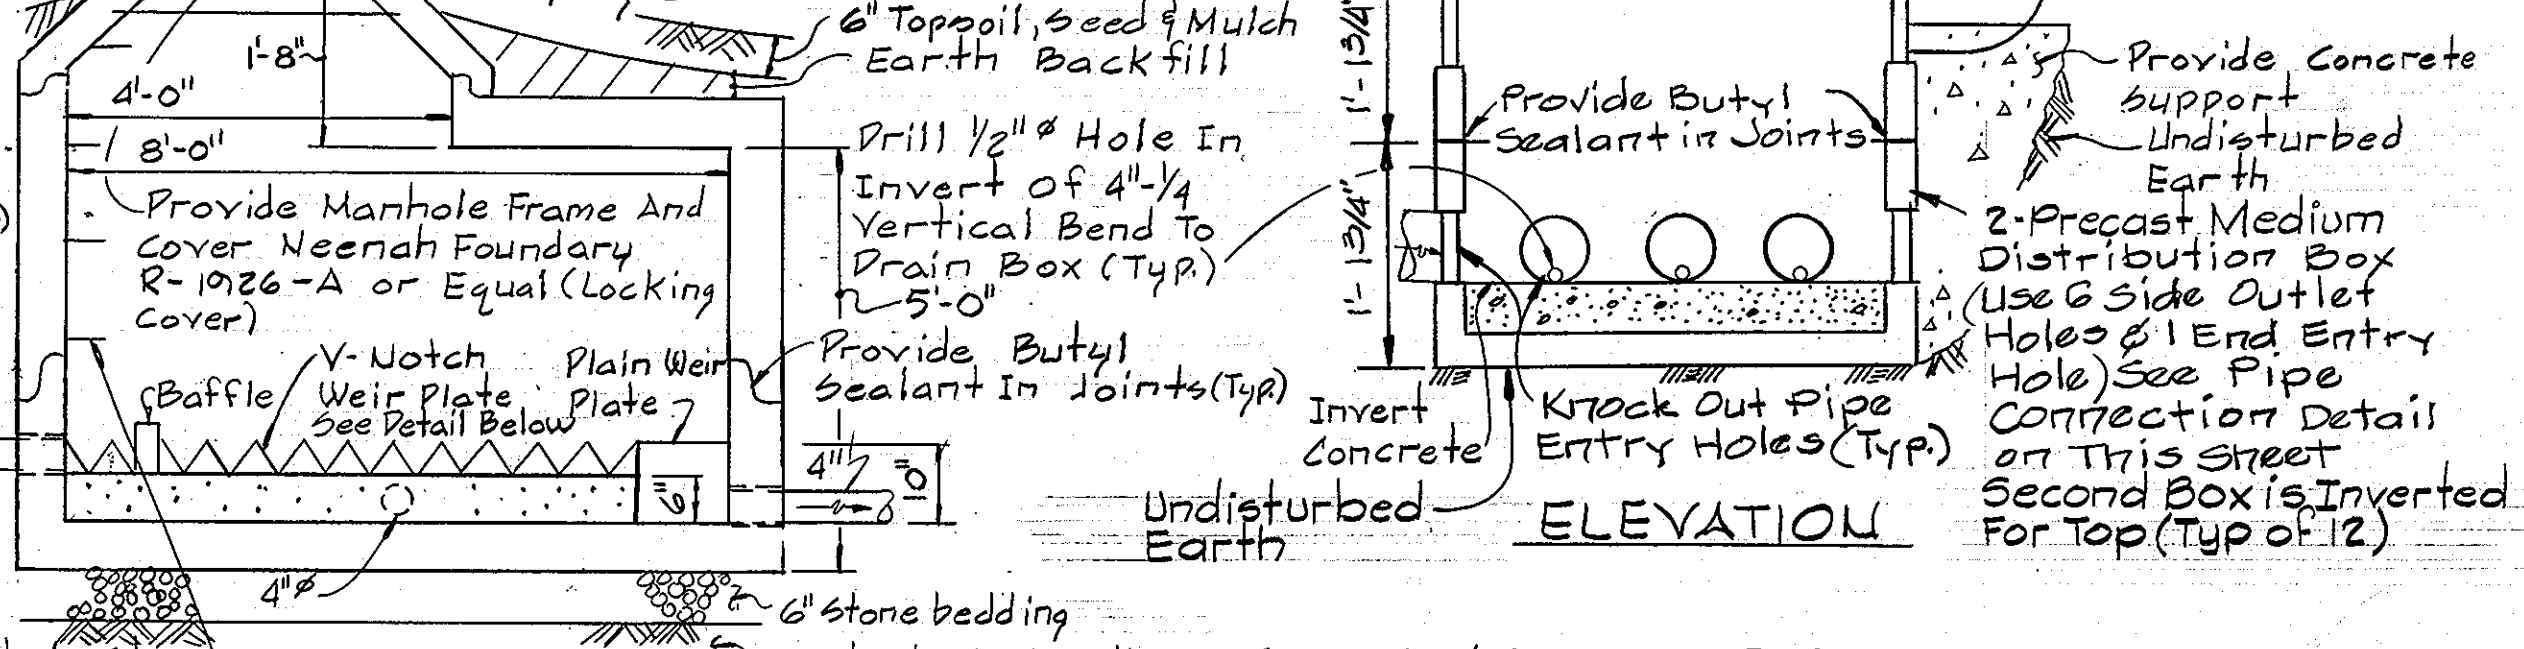 6" Topsoil, Seed & Mulch
Earth Backfill
1'-8"
4'-0"
8'-0"
Provide Manhole Frame And
Cover Neenah Foundary
R-1926-A or Equal (Locking
Cover)
Drill 1/2" ø Hole In
Invert Of 4"-1/4
Vertical Bend To
Drain Box (Typ.)
5'-0"
Provide Butyl
Sealant In Joints (Typ.)
V-Notch
Weir Plate
See Detail Below
Plain Weir
Plate
Baffle
6"
4"
4"ø
6" Stone bedding
1'-1 3/4"
1'-1 3/4"
Provide Butyl
Sealant in Joints
Provide Concrete
Support
Undisturbed
Earth
2-Precast Medium
Distribution Box
(Use 6 Side Outlet
Holes & 1 End Entry
Hole) See Pipe
Connection Detail
on This Sheet
Second Box is Inverted
For Top (Typ of 12)
Invert
Concrete
Knock Out Pipe
Entry Holes (Typ.)
Undisturbed
Earth
ELEVATION